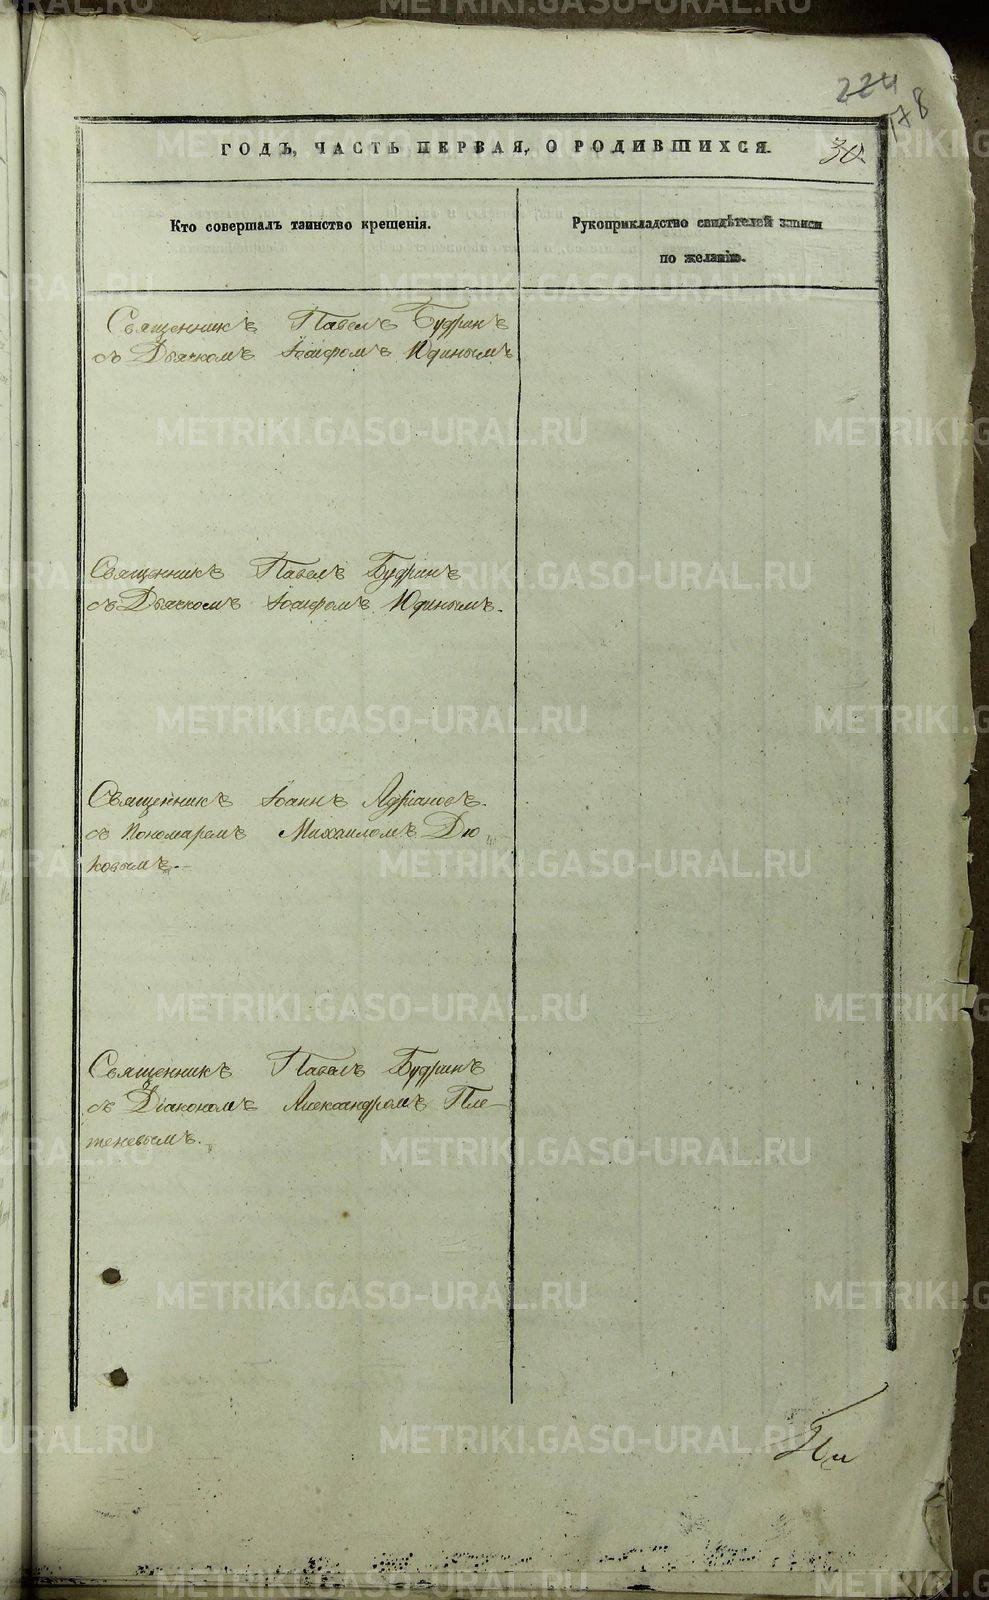 224
178
ГОДЪ, ЧАСТЬ ПЕРВАЯ, О РОДИВШИХСЯ.
30.
Кто совершалъ таинство крещенія.
Рукоприкладство свидѣтелей записи
по желанію.
Священникъ Павелъ Будринъ
съ Дьячкомъ Іосифомъ Юдинымъ
Священникъ Павелъ Будринъ
съ Дьячкомъ Іосифомъ Юдинымъ.
Священникъ Іоаннъ Адріановъ.
съ Пономаремъ Михаиломъ Дю
ковымъ.
Священникъ Павелъ Будринъ
съ Діакономъ Александромъ Пле-
теневымъ.
METRIKI.GASO-URAL.RU